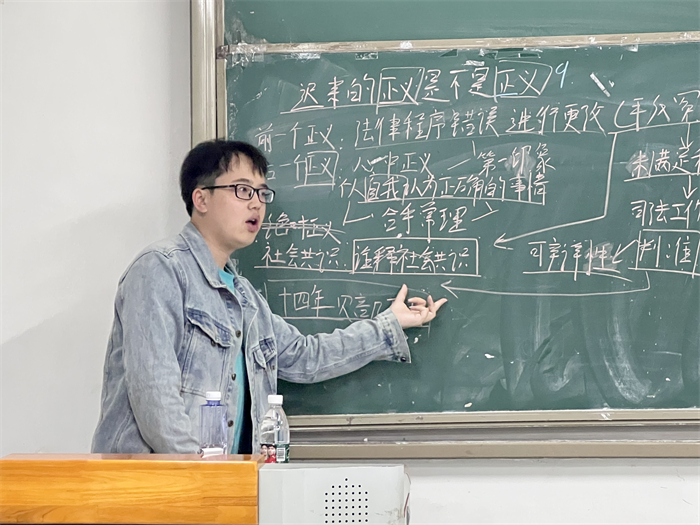 迟来的正义是不是正义？
前一个正义：法律程序错误 进行更改（手段
后一个正义 人心中正义 第一印象
个人自我认为正确的事情
未满足
合乎常理
司法工作
绝对正义
社会共识 诠释社会共识 可辩谬性 判
十四年